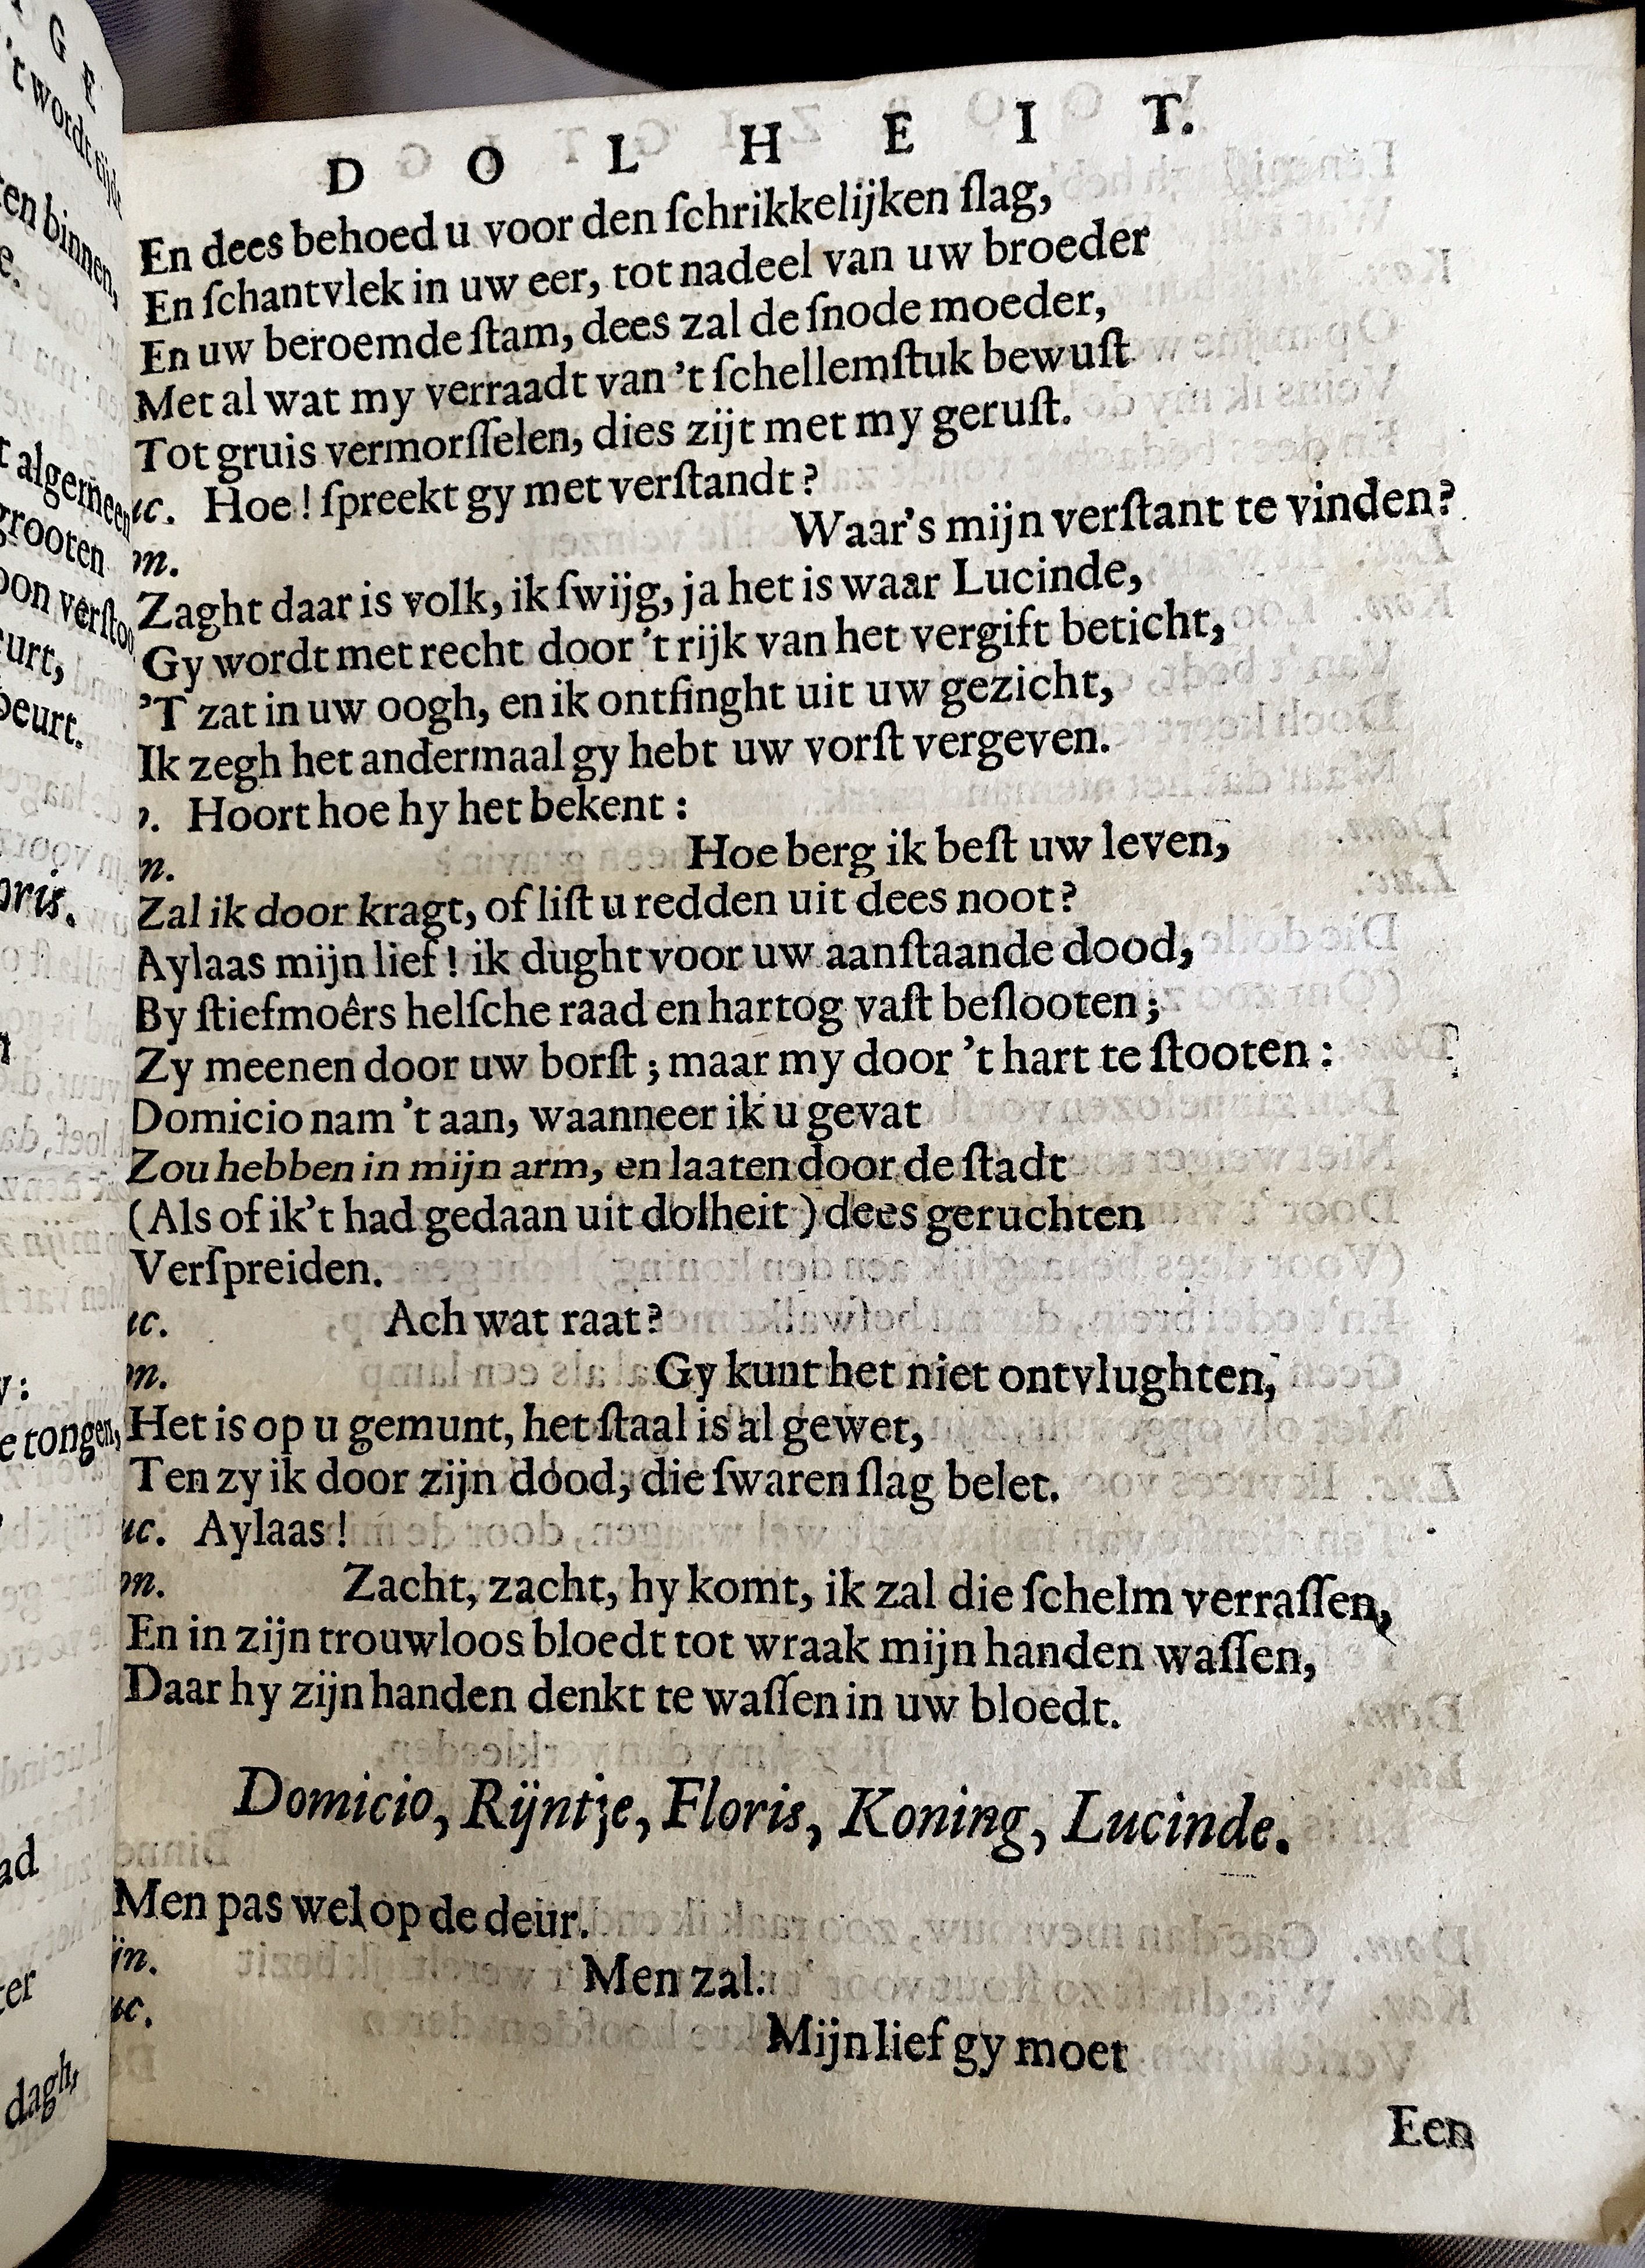 D O L H E I T.
En dees behoed u voor den ſchrikkelijken ſlag,
En ſchantvlek in uw eer, tot nadeel van uw broeder
En uw beroemde ſtam, dees zal de ſnode moeder,
Met al wat my verraadt van 't ſchellemſtuk bewuſt
Tot gruis vermorſſelen, dies zijt met my geruſt.
uc. Hoe! ſpreekt gy met verſtandt?
on. Waar's mijn verſtant te vinden?
Zaght daar is volk, ik ſwijg, ja het is waar Lucinde,
Gy wordt met recht door 't rijk van het vergift beticht,
'T zat in uw oogh, en ik ontfinght uit uw gezicht,
Ik zegh het andermaal gy hebt uw vorſt vergeven.
Hoort hoe hy het bekent:
n. Hoe berg ik beſt uw leven,
Zal ik door kragt, of liſt u redden uit dees noot?
Aylaas mijn lief! ik dught voor uw aanſtaande dood,
By ſtiefmoêrs helſche raad en hartog vaſt beſlooten;
Zy meenen door uw borſt; maar my door 't hart te ſtooten:
Domicio nam 't aan, waanneer ik u gevat
Zou hebben in mijn arm, en laaten door de ſtadt
(Als of ik't had gedaan uit dolheit) dees geruchten
Verſpreiden.
uc. Ach wat raat?
on. Gy kunt het niet ontvlughten,
Het is op u gemunt, het ſtaal is al gewet,
Ten zy ik door zijn dood, die ſwaren ſlag belet.
uc. Aylaas!
on. Zacht, zacht, hy komt, ik zal die ſchelm verraſſen,
En in zijn trouwloos bloedt tot wraak mijn handen waſſen,
Daar hy zijn handen denkt te waſſen in uw bloedt.
Domicio, Rijntje, Floris, Koning, Lucinde.
Men pas wel op de deur.
ijn. Men zal.
uc. Mijn lief gy moet
Een